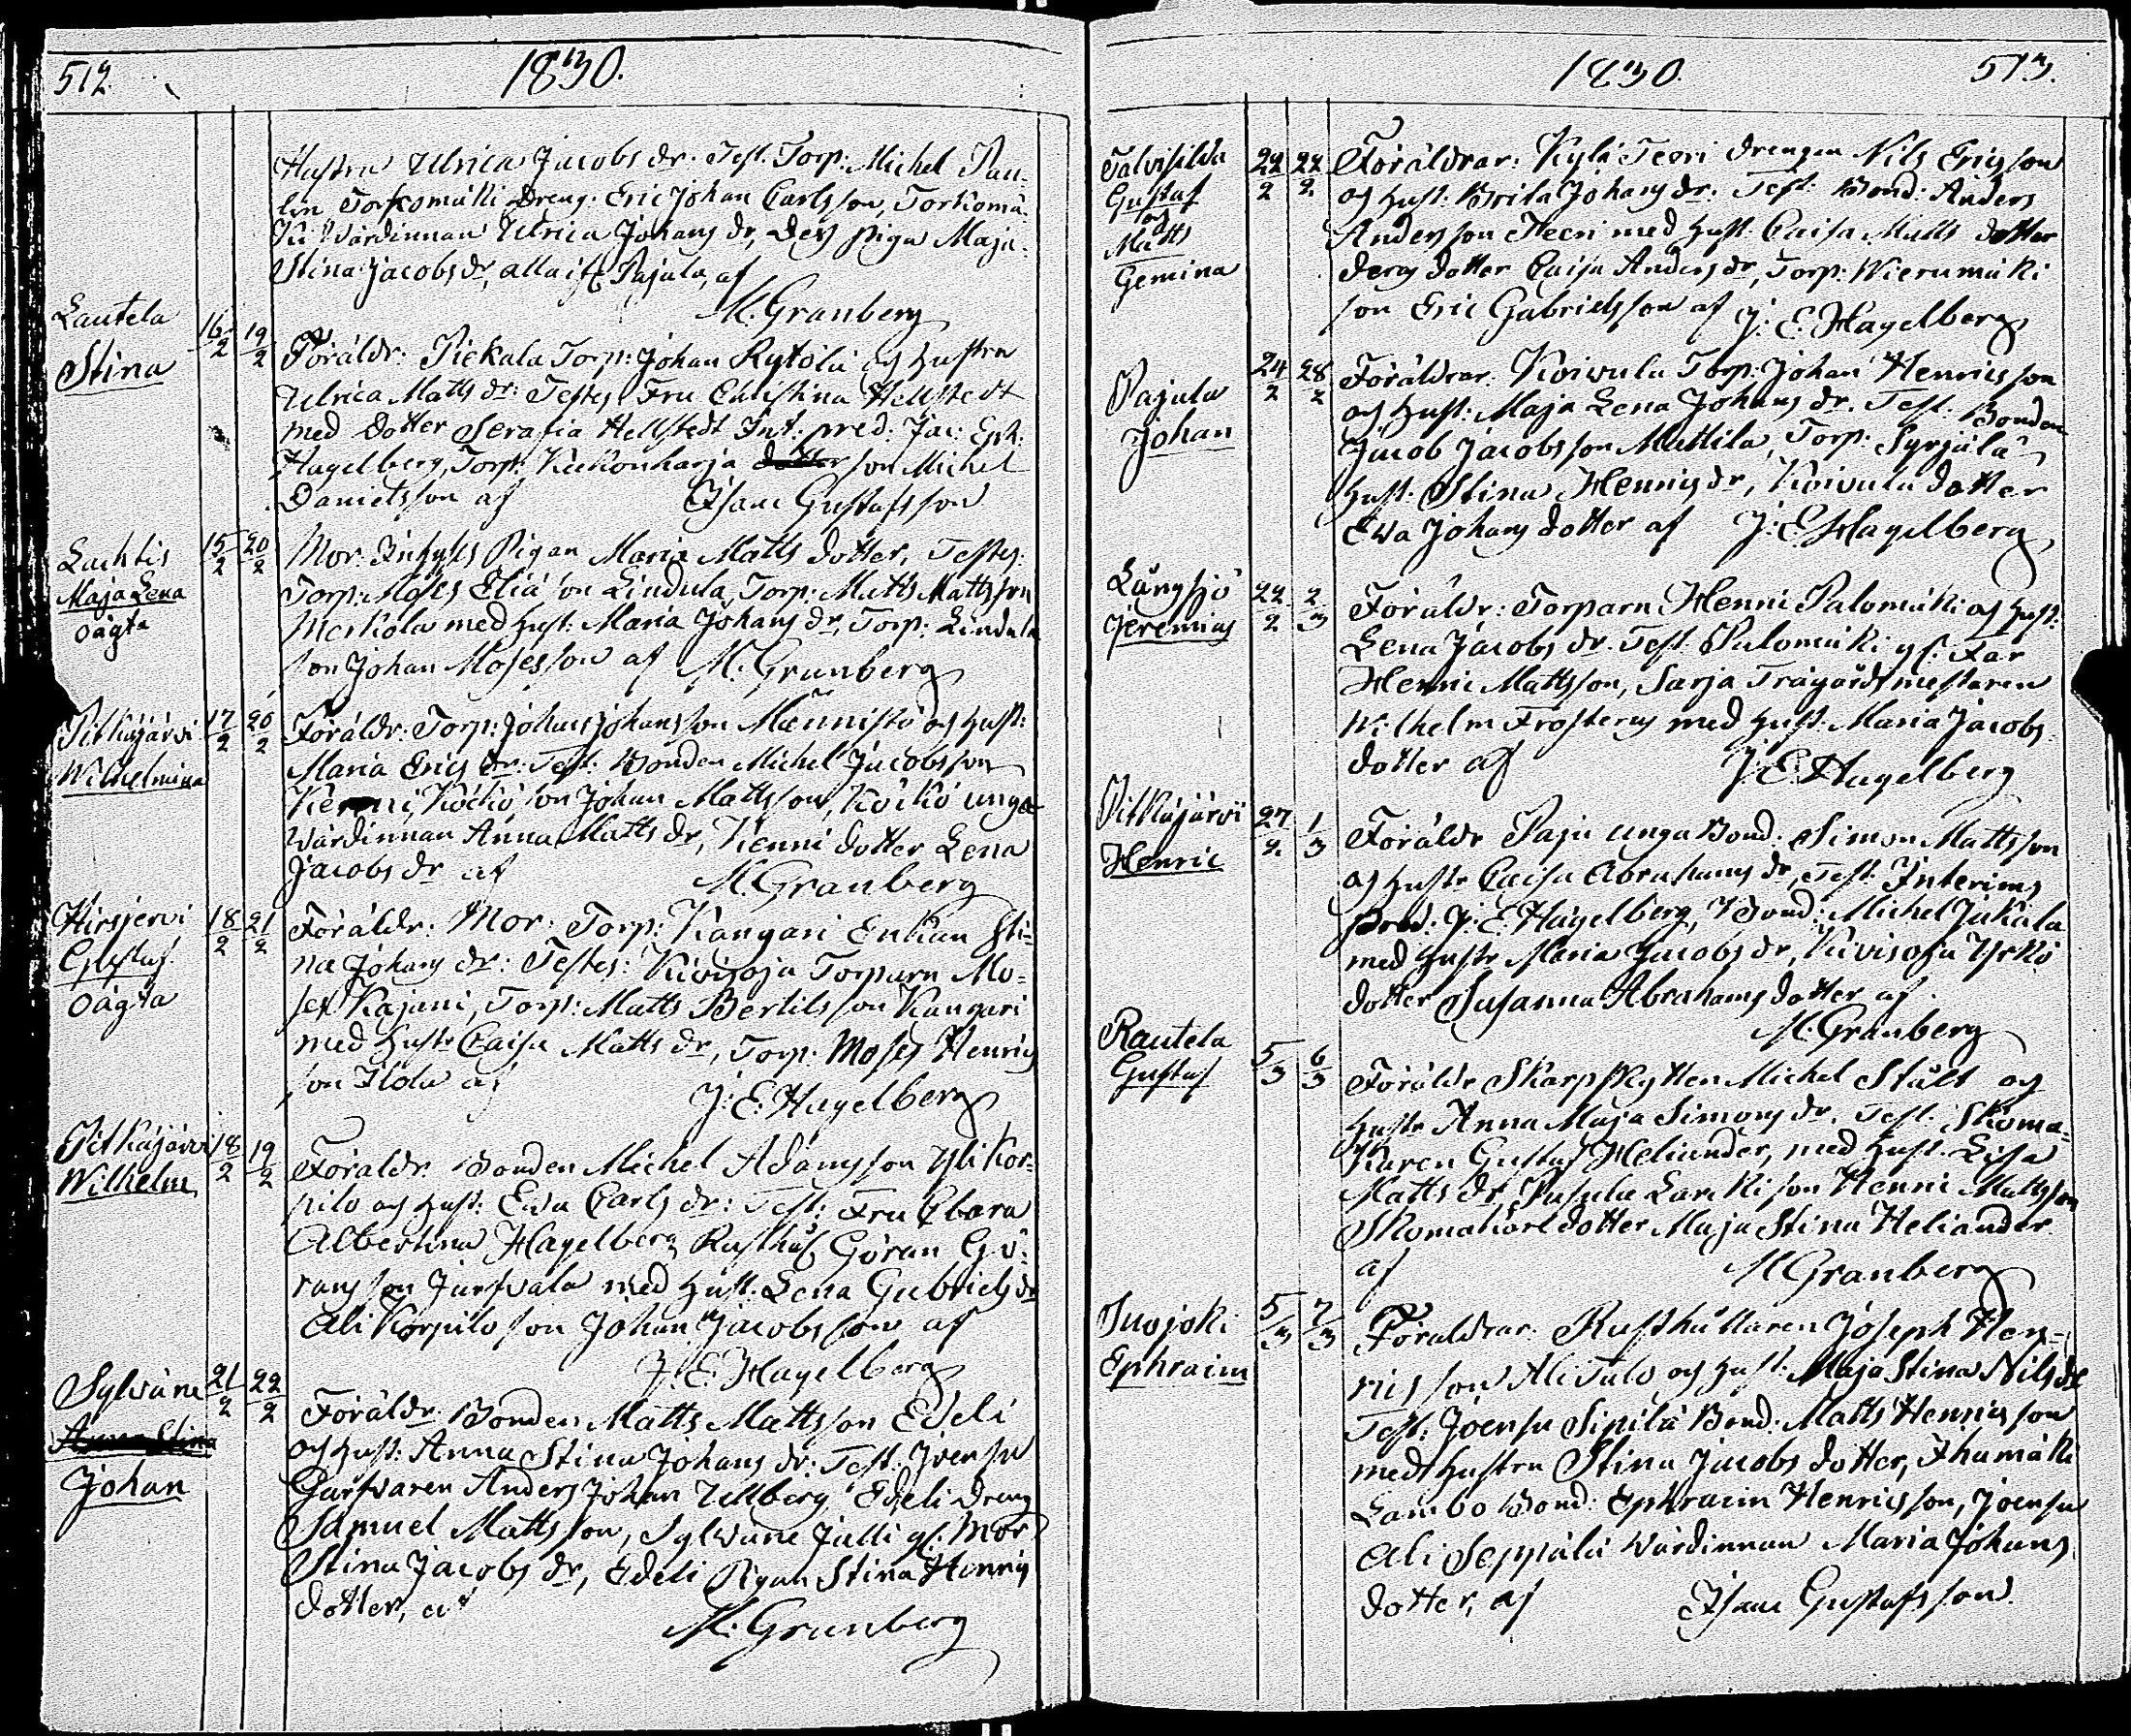 512.
1830.
Hustru Ulrica Jacobs dr. Test. Torp: Michel Pau-
lin, Torkomäki Dreng. Eric Johan Carlsson, Torkomä-
ki Wärdinnan Ulrica Johans dr, Des piga Maja
Stina Jacobs dr, alla ifr. Pajula, af
M. Granberg
Lautela
Stina
16/2 19/2
Föräldr: Piekala Torp: Johan Rytölä och hustru
Ulrica Matts dr: Testes Fru Christina Hellstedt
med dotter Serafia Hellstedt Int: pred: Jac: Eph:
Hagelberg, Torp: Kiekonharja son Michel
Danielsson af Isaac Gustafsson
Luchtis
Maja Lena
oägta
15/2 20/2
Mor: Inhyses Pigan Maria Matts dotter, Testes:
Torp: Moses Elia son Lindula, Torp: Matts Mattsson
Merkola med hust: Maria Johans dr, Torp: Lindula
son Johan Mosesson af M. Granberg
Pitkäjärvi
Wilhelmina
17/2 20/2
Föräldr: Torp: Johan Johansson Männistö och hust:
Maria Erics dr: Test: Bonden Michel Jacobsson
Kenni, Köckö son Johan Mattsson, Köckö unga
Wärdinnan Anna Matts dr, Kenni dotter Lena
Jacobs dr af M. Granberg
Hirsjervi
Gustaf
oägta
18/2 21/2
Föräldr: Mor: Torp: Kangari Enkan Sti-
na Johans dr: Testes: Kivisoja Torparn Mo-
ses Kajani, Torp: Matts Bertilsson Kangari
med hustr Caisa Matts dr, Torp: Moses Henrics
son Ilola af
J: E: Hagelberg
Pitkäjärvi
Wilhelm
18/2 19/2
Föräldr: Bonden Michel Adamsson Yli Kor-
pilo och hust: Ewa Carls dr: Test: Fru Ebara
Albertina Hagelberg Rusthåll Göran Gö-
ransson Jursvala med hust: Lena Gabriels dr
Ali Korpilo son Johan Jacobsson af
J. E. Hagelberg
Sylväne
Anna Stina
Johan
21/2 22/2
Föräldr: Bonden Matts Mattsson Edeli
och hust: Anna Stina Johans dr: Test: Joensu
Garfvaren Anders Johan Ullberg, Edeli Dreng
Samuel Mattsson, Sylvane Julli gl: Mor
Stina Jacobs dr, Edeli Pigan Stina Henrics
dotter, af
M. Granberg
1830.
513.
Talvisilda
Gustaf
och
Matts
Gemina
22/2 24/2
Föräldrar: Kylä Teeri drengen Nils Ericsson
och hust: Brita Johans dr: Test: Bond: Anders
Andersson Teeri med hust: Caisa Matts dotter
deras dotter Caisa Anders dr, Torp: Wierumäki
son Eric Gabrielsson af J: E. Hagelberg
Pajula
Johan
24/2 28/2
Föräldrar: Koivula Torp: Johan Henricsson
och hust: Maja Lena Johans dr. Test. Bonden
Jacob Jacobsson Mattila, Torp: Syrjälä
hust: Stina Henrics dr, Koivula dotter
Ewa Johans dotter af J: E. Hagelberg
Långsjö
Jeremias
22/2 2/3
Föräldr: Torparn Henric Palomäki och hust:
Lena Jacobs dr. Test. Palomäki gl. Far
Henric Mattsson, Sarja Trägårdsmestaren
Wilhelm Frosterus med hust: Maria Jacobs
dotter af J: E: Hagelberg
Pitkäjärvi
Henric
27/2 1/3
Föräldr Paju unga Bond: Simon Mattsson
och hustr Caisa Abrahams dr, Test: Interims
Pred: J: E: Hagelberg, Bond: Michel Jukala
med hustr Maria Jacobs dr, Kivisoja Yrkö
dotter Susanna Abrahams dotter af
M. Granberg
Rautela
Gustaf
5/3 6/3
Föräldr Skarpskytten Michel Stålt och
hustr Anna Maja Simons dr. Test. Skoma-
karen Gustaf Heliander, med hust. Lisa
Matts dr, Pusula Larcki son Henric Mattsson
Skomakare dotter Maja Stina Heliander
af M Granberg
Juojoki
Ephraim
5/3 7/3
Föräldrar: Rusthållaren Joseph Hen-
ricsson Alitalo och hust: Maja Stina Nils dr
Test: Joensu Sipilä Bond: Matts Henricsson
med hustru Stina Jacobs dotter, Ihamäki
Lambo Bond: Ephraim Henricsson, Joensu
Ali Seppälä Wärdinnan Maria Johans
dotter, af Isaac Gustafsson